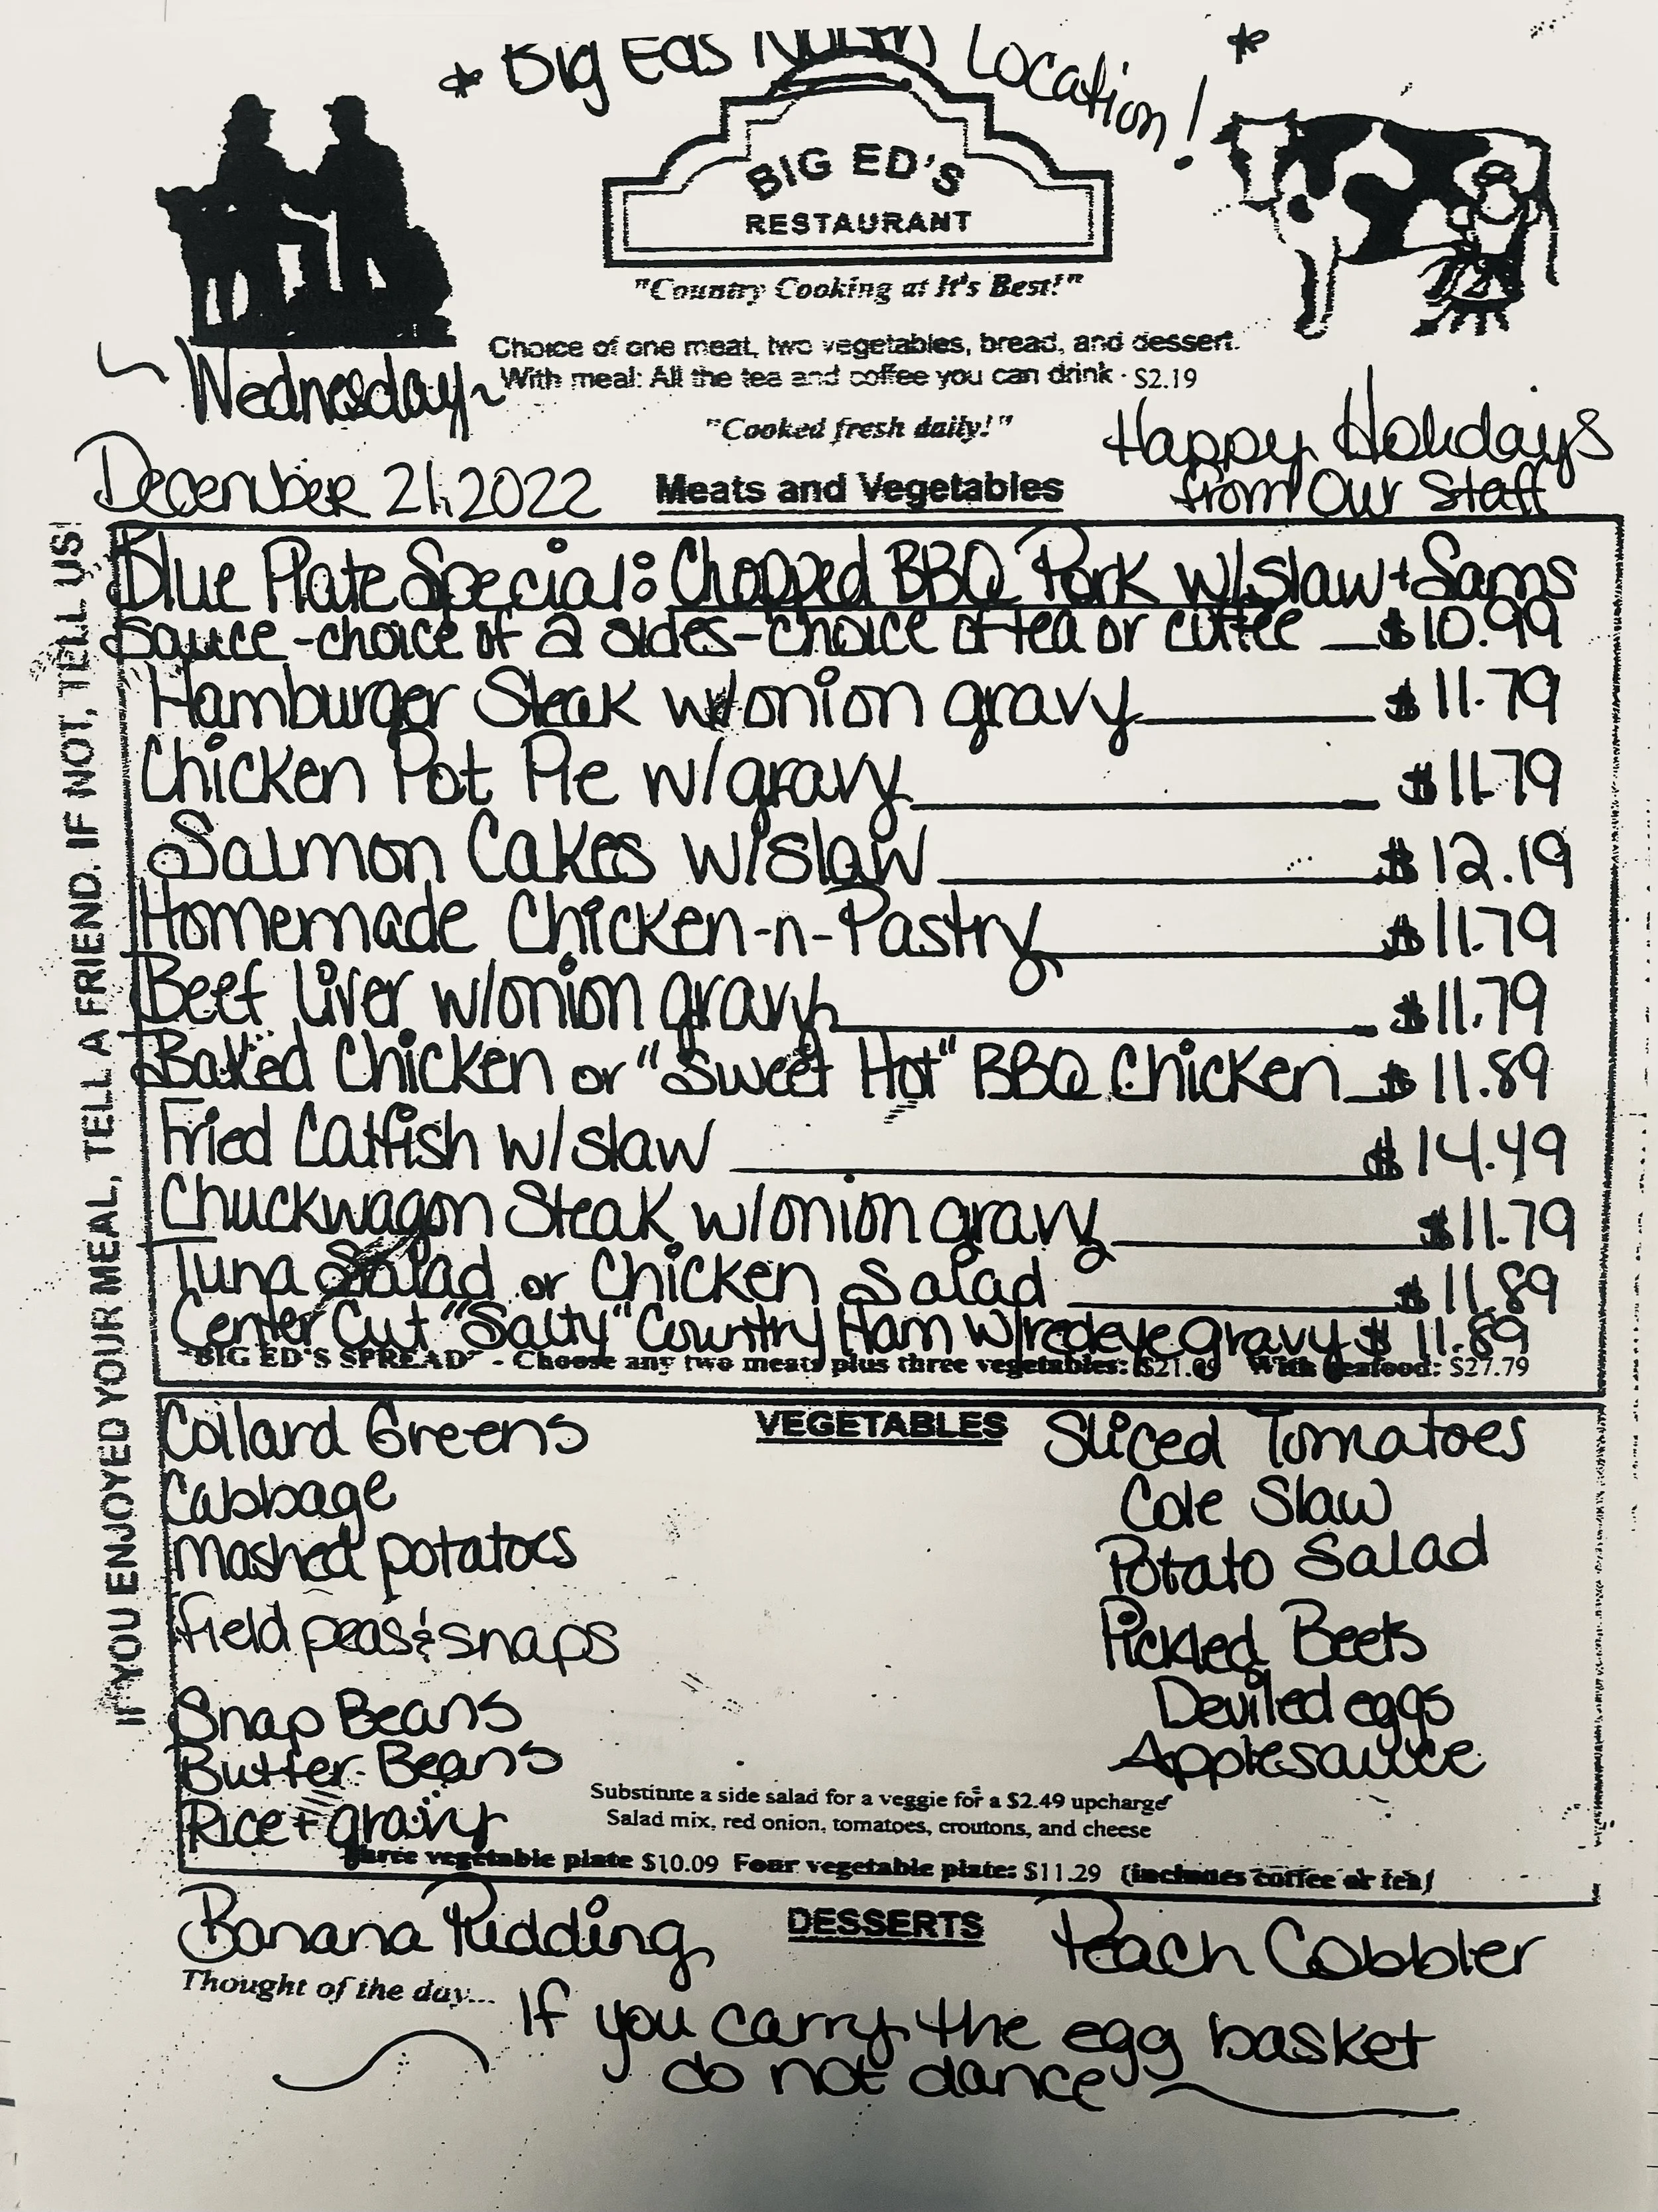 * Big Eds North Location! *
BIG ED'S
RESTAURANT
"Country Cooking at It's Best!"
Choice of one meat, two vegetables, bread, and dessert.
With meal: All the tea and coffee you can drink · $2.19
~ Wednesday ~
"Cooked fresh daily!"
Happy Holidays
from Our Staff
December 21, 2022
Meats and Vegetables
IF YOU ENJOYED YOUR MEAL, TELL A FRIEND. IF NOT, TELL US!
Blue Plate Special: Chopped BBQ Pork w/slaw + Sams
sauce - choice of 2 sides - choice of tea or coffee $10.99
Hamburger Steak w/onion gravy $11.79
Chicken Pot Pie w/gravy $11.79
Salmon Cakes w/slaw $12.19
Homemade Chicken-n-Pastry $11.79
Beef Liver w/onion gravy $11.79
Baked Chicken or "Sweet Hot" BBQ Chicken $11.89
Fried Catfish w/slaw $14.49
Chuckwagon Steak w/onion gravy $11.79
Tuna Salad or Chicken Salad $11.89
Center Cut "Salty" Country Ham w/redeye gravy $11.89
"BIG ED'S SPREAD" - Choose any two meats plus three vegetables: $21.09 With seafood: $27.79
VEGETABLES
Collard Greens
Cabbage
Mashed potatoes
field peas & snaps
Snap Beans
Butter Beans
Rice + gravy
Sliced Tomatoes
Cole Slaw
Potato Salad
Pickled Beets
Deviled eggs
Applesauce
Substitute a side salad for a veggie for a $2.49 upcharge
Salad mix, red onion, tomatoes, croutons, and cheese
Three vegetable plate $10.09 Four vegetable plate: $11.29 (includes coffee or tea)
DESSERTS
Banana Pudding
Peach Cobbler
Thought of the day...
If you carry the egg basket
do not dance